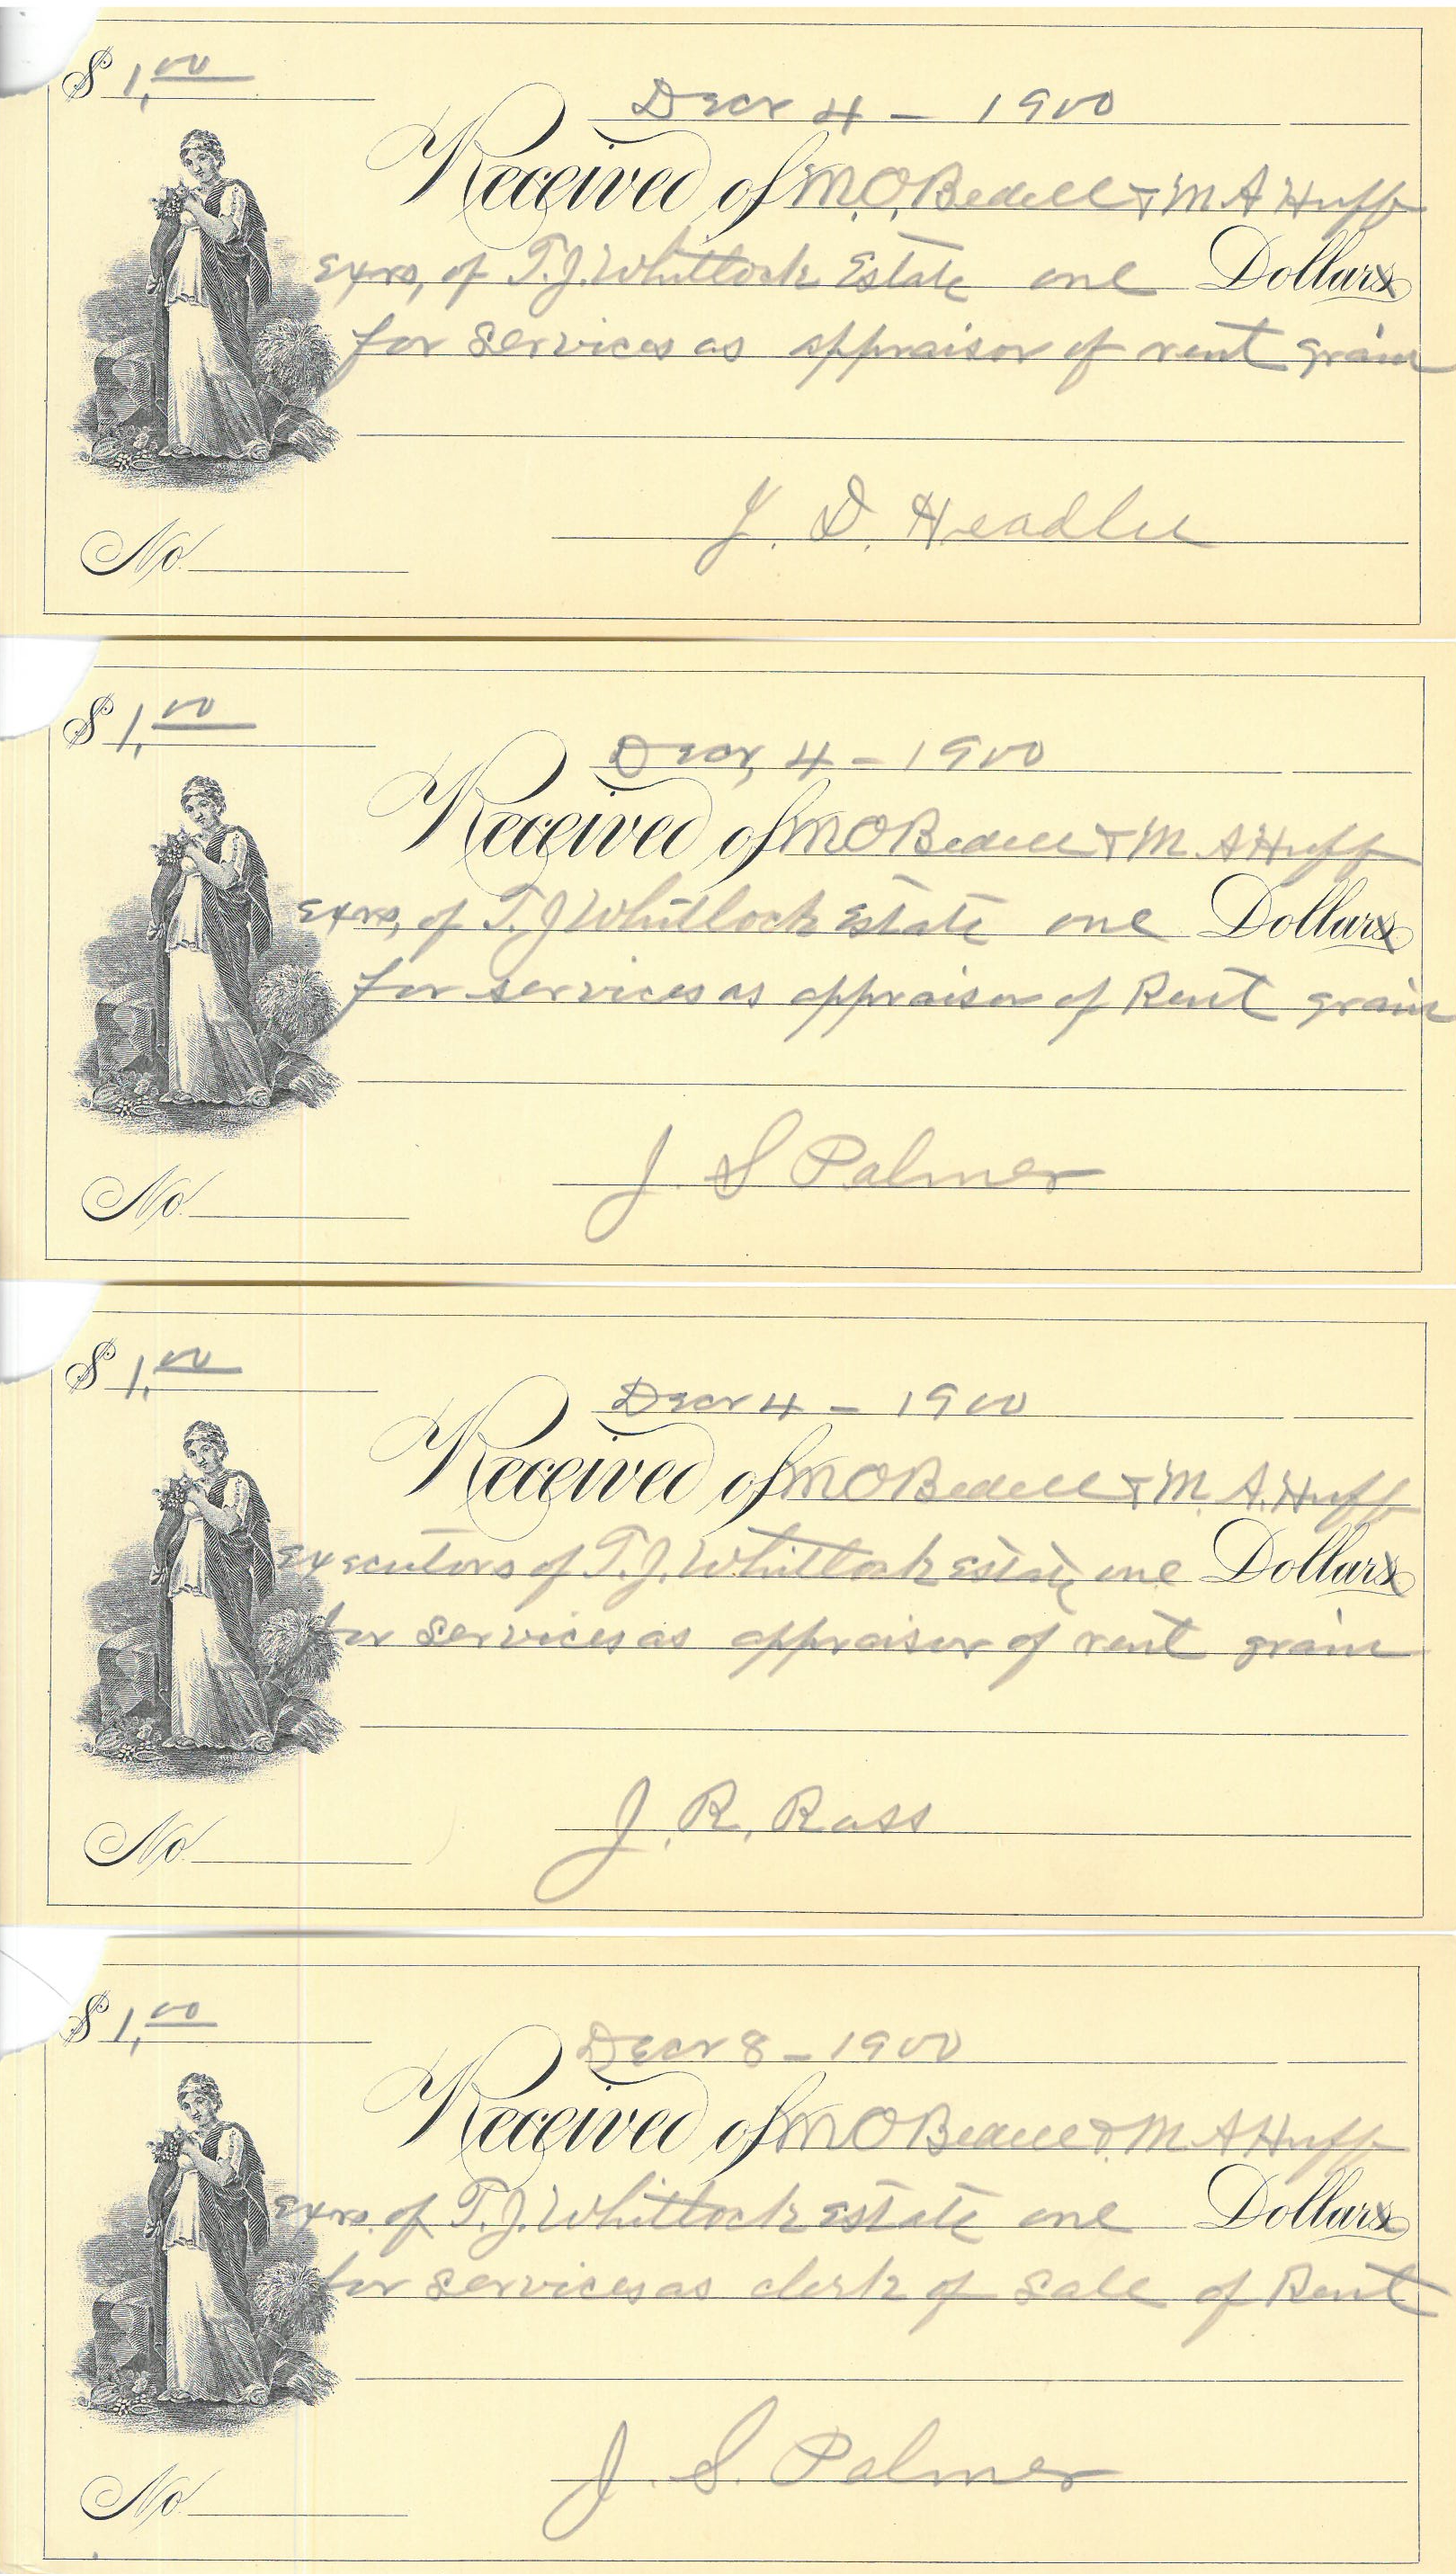 $ 1,00
Decr 4 - 1900
Received of M.O. Bedell & M A Huff
Exrs, of T.J. Whitlock Estate one Dollars
for services as appraisor of rent grain
J. D. Headlee
No.
$ 1,00
Decr, 4 - 1900
Received of M O Bedell & M A Huff
Exrs, of T. J Whitlock Estate one Dollars
for services as appraisor of Rent grain
J. S Palmer
No.
$ 1,00
Decr 4 - 1900
Received of M O Bedell & M. A. Huff
Executors of T. J. Whitlock estate one Dollars
for services as appraisor of rent grain
J. R. Ross
No.
$ 1,00
Decr 8 - 1900
Received of M O Bedell & M A Huff
Exrs. of T. J. Whitlock estate one Dollars
for services as clerk of sale of Rent
J. S. Palmer
No.